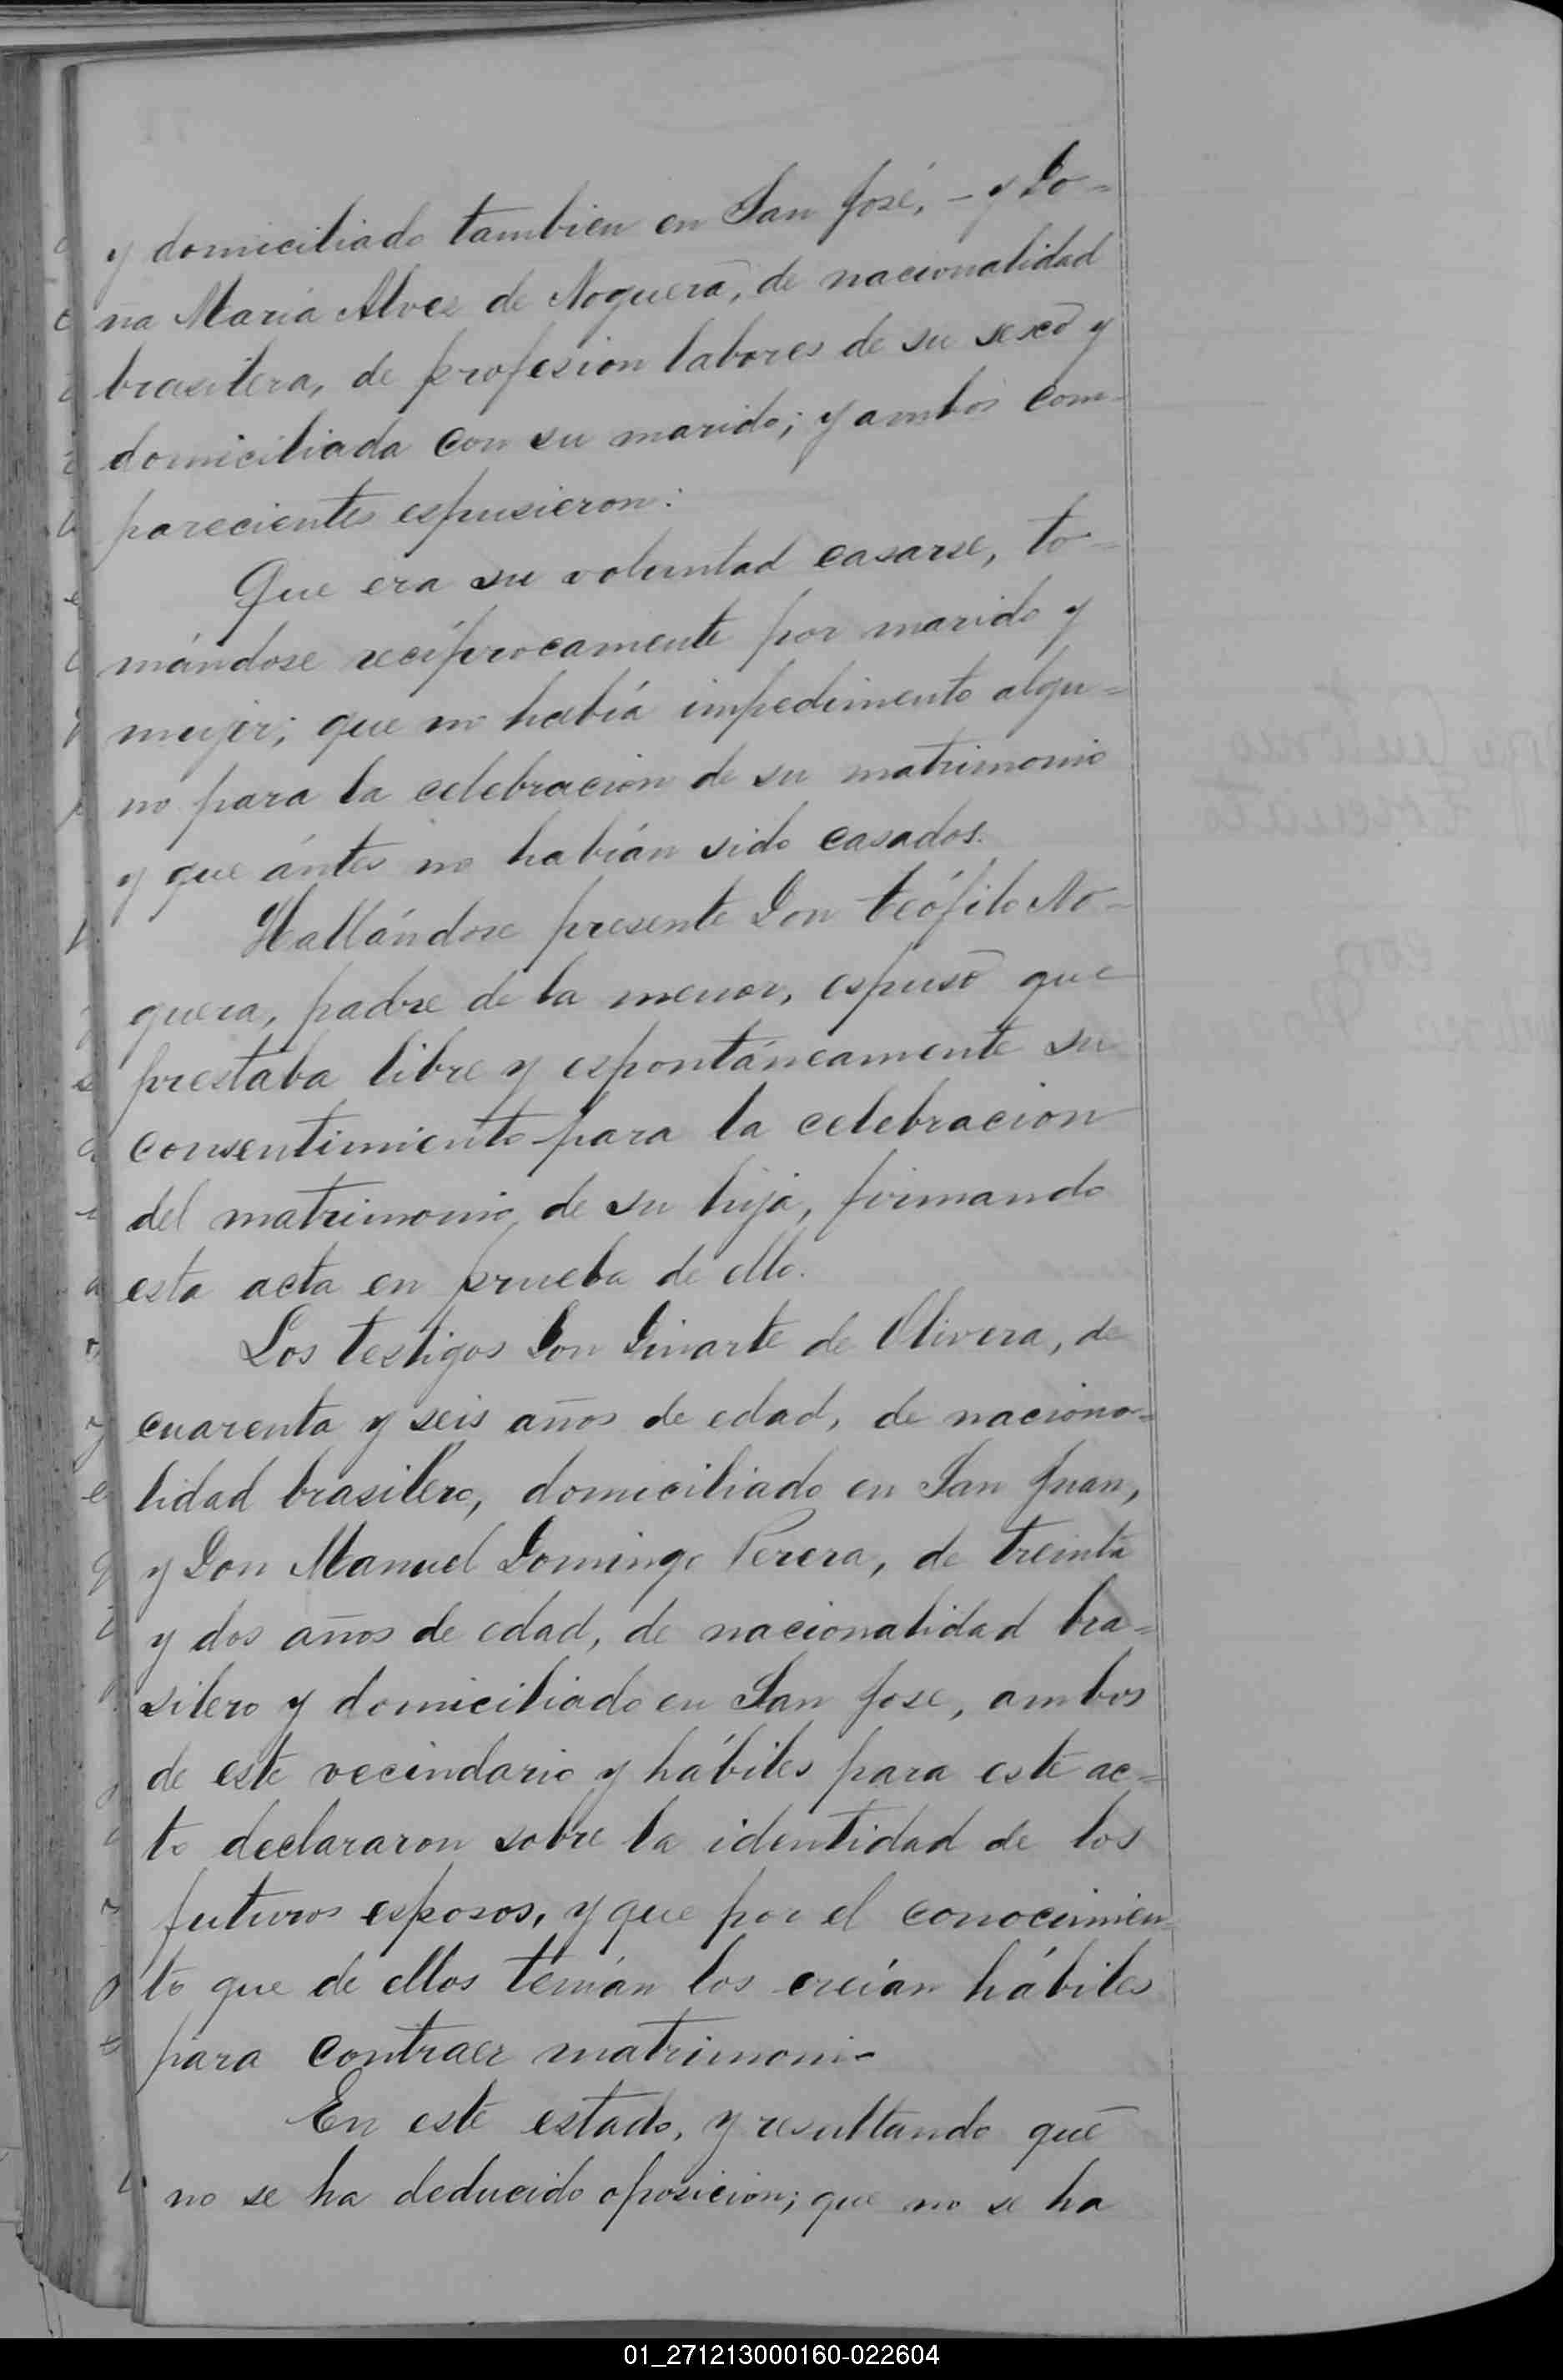 y domiciliado tambien en San José, – y Do=
ña María Alvez de Noguera, de nacionalidad
brasilera, de profesion labores de su sexo y
domiciliada con su marido; y ambos com-
parecientes espusieron:
Que era su voluntad casarse, to-
mándose recíprocamente por marido y
mujer; que no había impedimento algu=
no para la celebracion de su matrimonio
y que ántes no habían sido casados.
Hallándose presente Don Teófilo No-
guera, padre de la menor, espuso que
prestaba libre y espontáneamente su
consentimiento para la celebracion
del matrimonio de su hija, firmando
esta acta en prueba de ello.
Los testigos Don Dinarte de Olivera, de
cuarenta y seis años de edad, de naciona=
lidad brasilero, domiciliado en San Juan,
y Don Manuel Domingo Perera, de treinta
y dos años de edad, de nacionalidad bra=
silero y domiciliado en San Jose, ambos
de este vecindario y hábiles para este ac=
to declararon sobre la identidad de los
futuros esposos, y que por el conocimien-
to que de ellos tenían los creían hábiles
para contraer matrimonio
En este estado, y resultando que
no se ha deducido oposicion; que no se ha
01_271213000160-022604